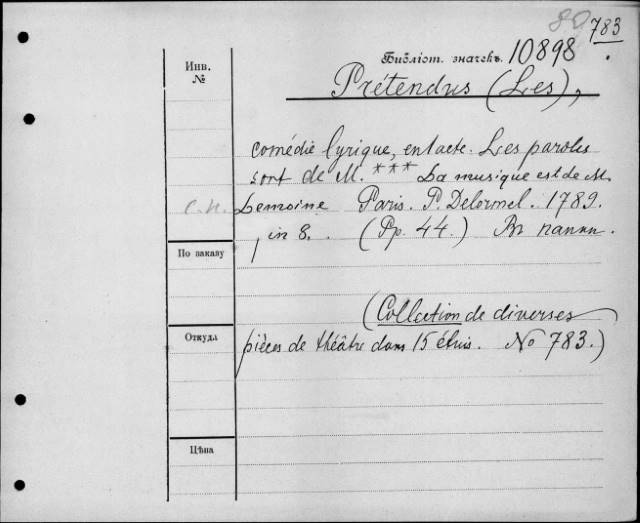 783
Инв. №
Библіот. значекъ 10898
Prétendus (Les),
comédie lyrique, en 1 acte. Les paroles
sont de M. *** La musique est de M.
Lemoine Paris. P. Delormel. 1789.
in 8. (Pp. 44.) Въ папкѣ.
По заказу
(Collection de diverses
Откуда
pièces de théâtre dans 15 étuis. No 783.)
Цѣна